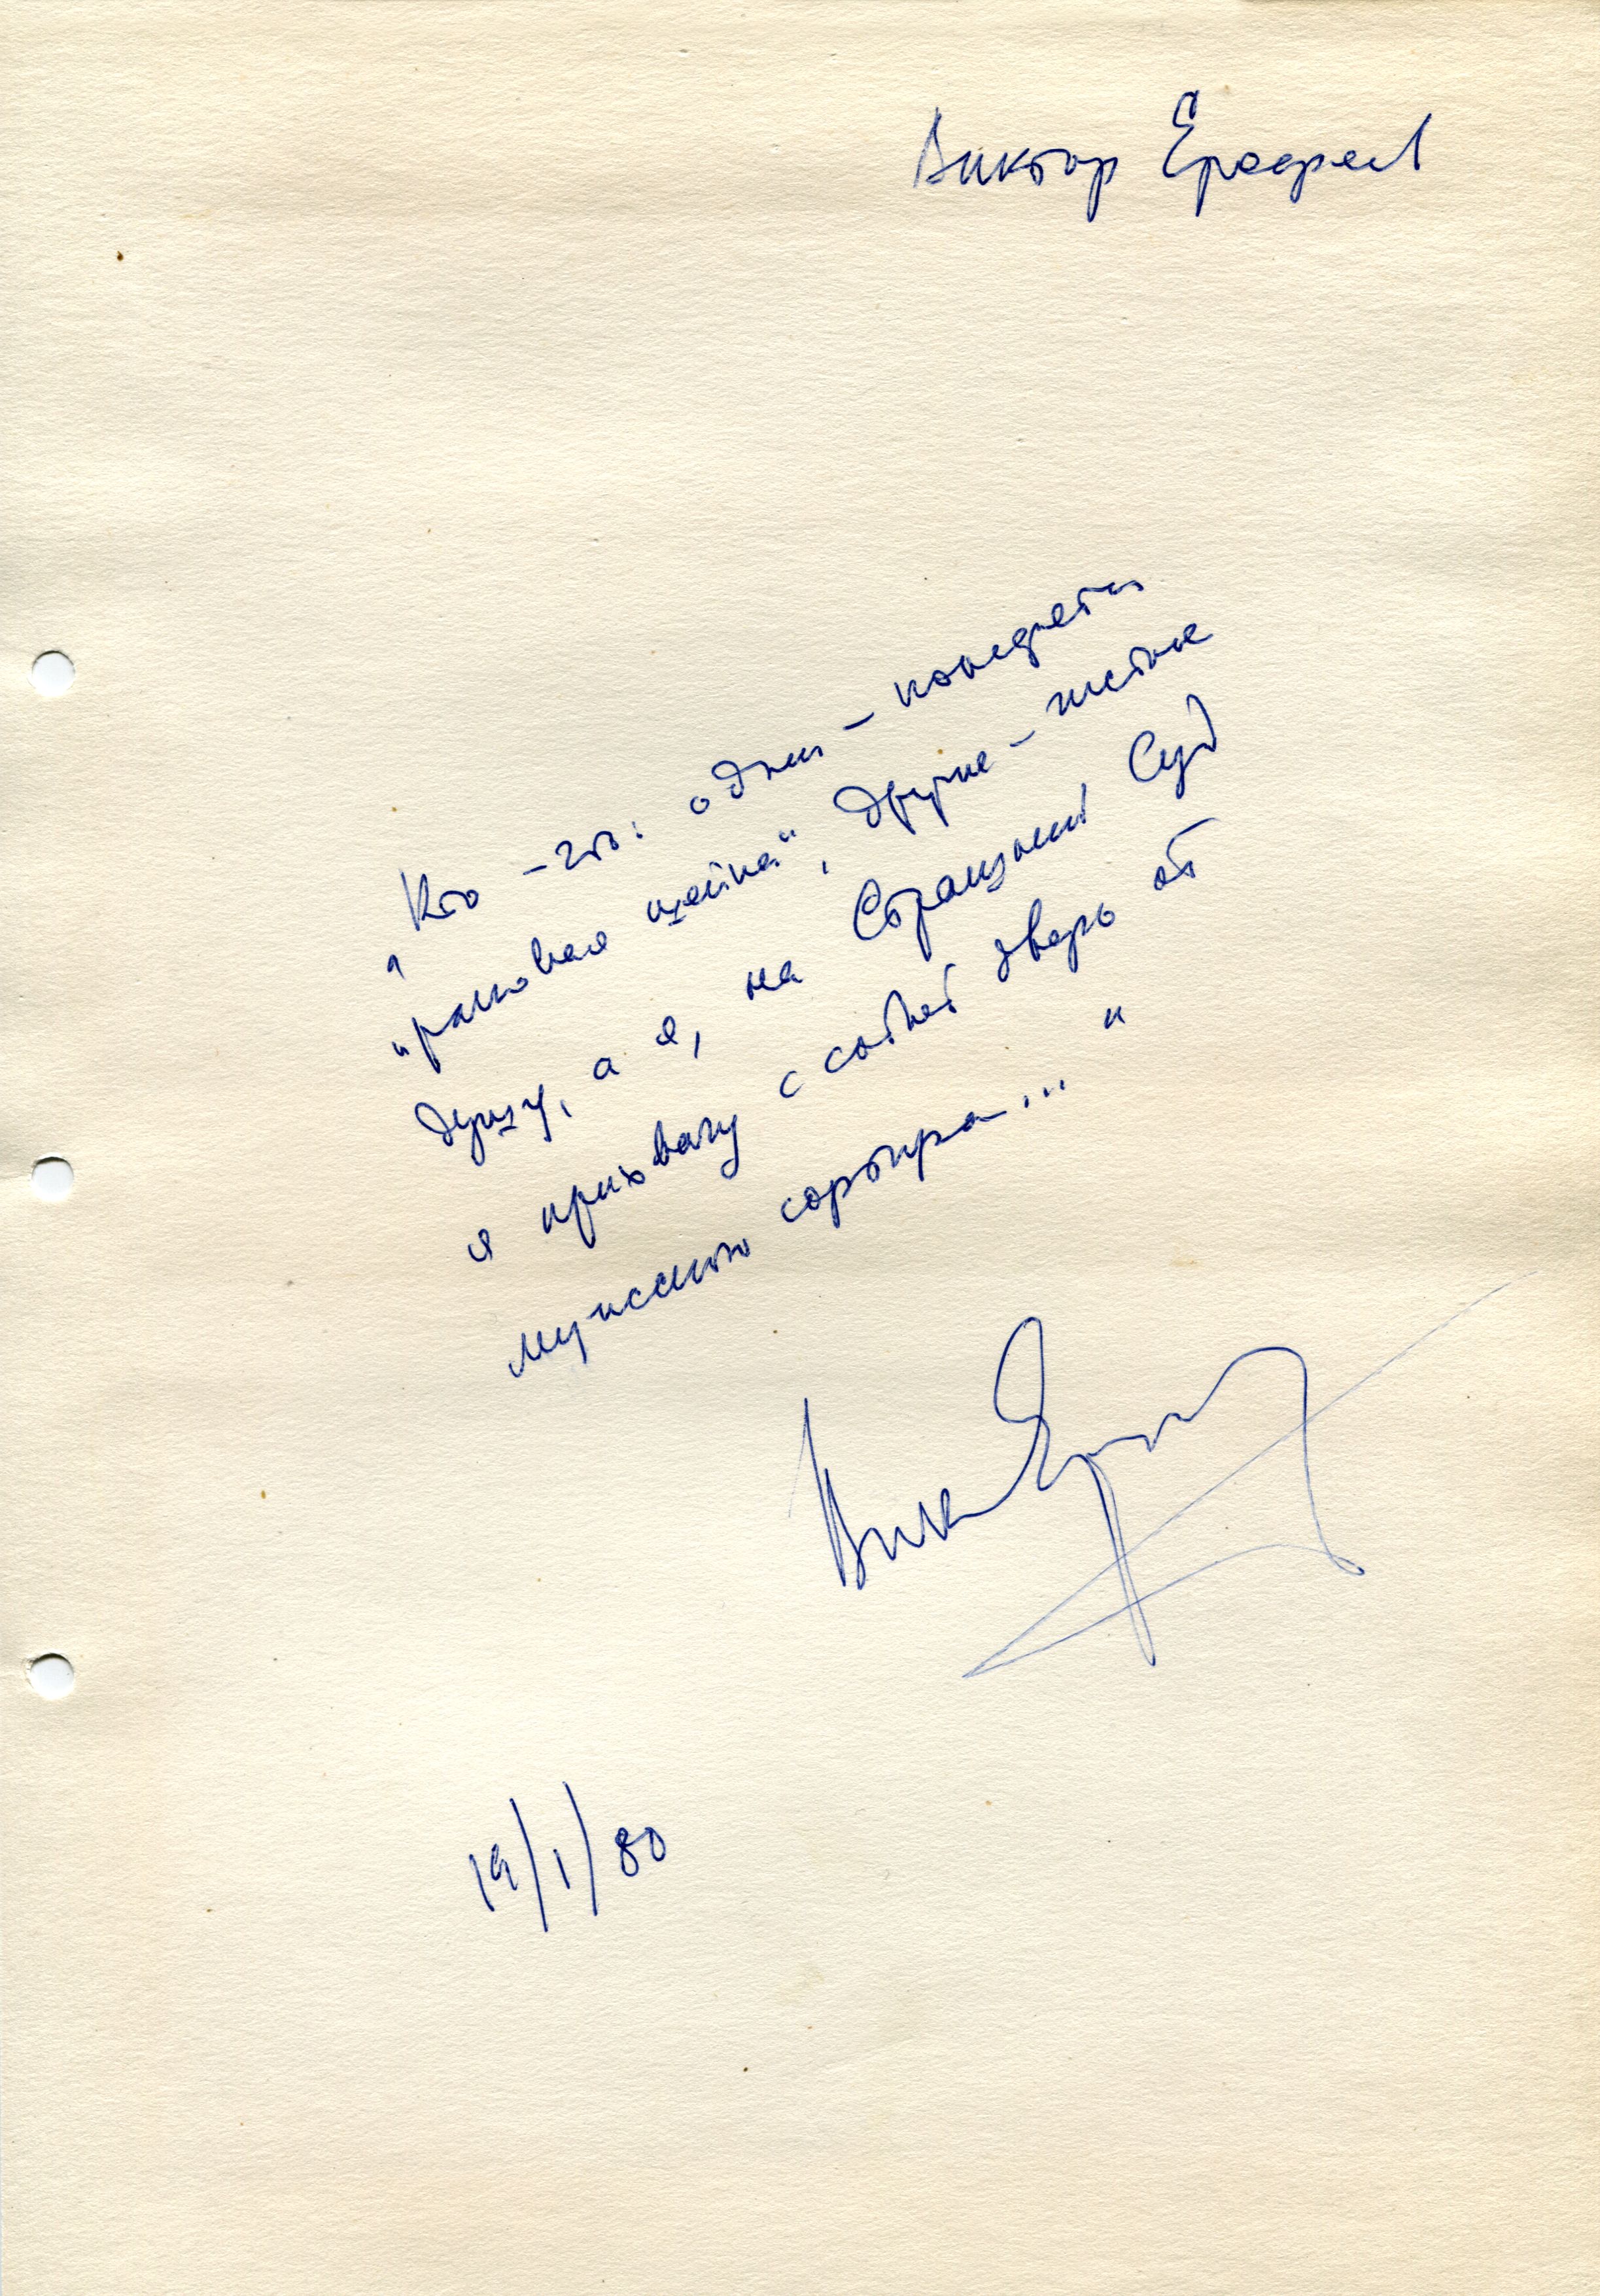 Виктор Ерофеев
"Кто - что: одни - конфеты
"раковая шейка", другие - жетоне
душу, а я, на Страшный Суд
я прихвачу с собой дверь от
мужского сортира... "
19/1/80